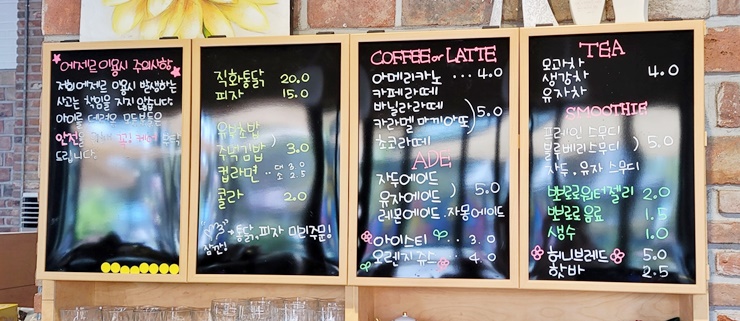 에제르 이용시 주의사항
저희 에제르 이용시 발생하는
사고는 책임을 지지 않습니다
아이를 데려온 모든분들은
안전을
드립니다.
직화통닭 20.0
피자 15.0
유부초밥
주먹김밥 3.0
컵라면 대 3.0 소 2.5
콜라 2.0
잠깐! → 통닭, 피자 미리주문!
COFFEE or LATTE
아메리카노 ··· 4.0
카페라떼
바닐라라떼 5.0
카라멜 마끼아또
초코라떼
ADE
자두에이드
유자에이드 5.0
레몬에이드·자몽에이드
아이스티 ··· 3.0
오렌지쥬스 ·· 4.0
TEA
모과차
생강차 4.0
유자차
SMOOTHIE
프레인 스무디
블루베리스무디 5.0
자두·유자 스무디
뽀로로워터젤리 2.0
뽀로로음료 1.5
생수 1.0
허니브레드 5.0
핫바 2.5